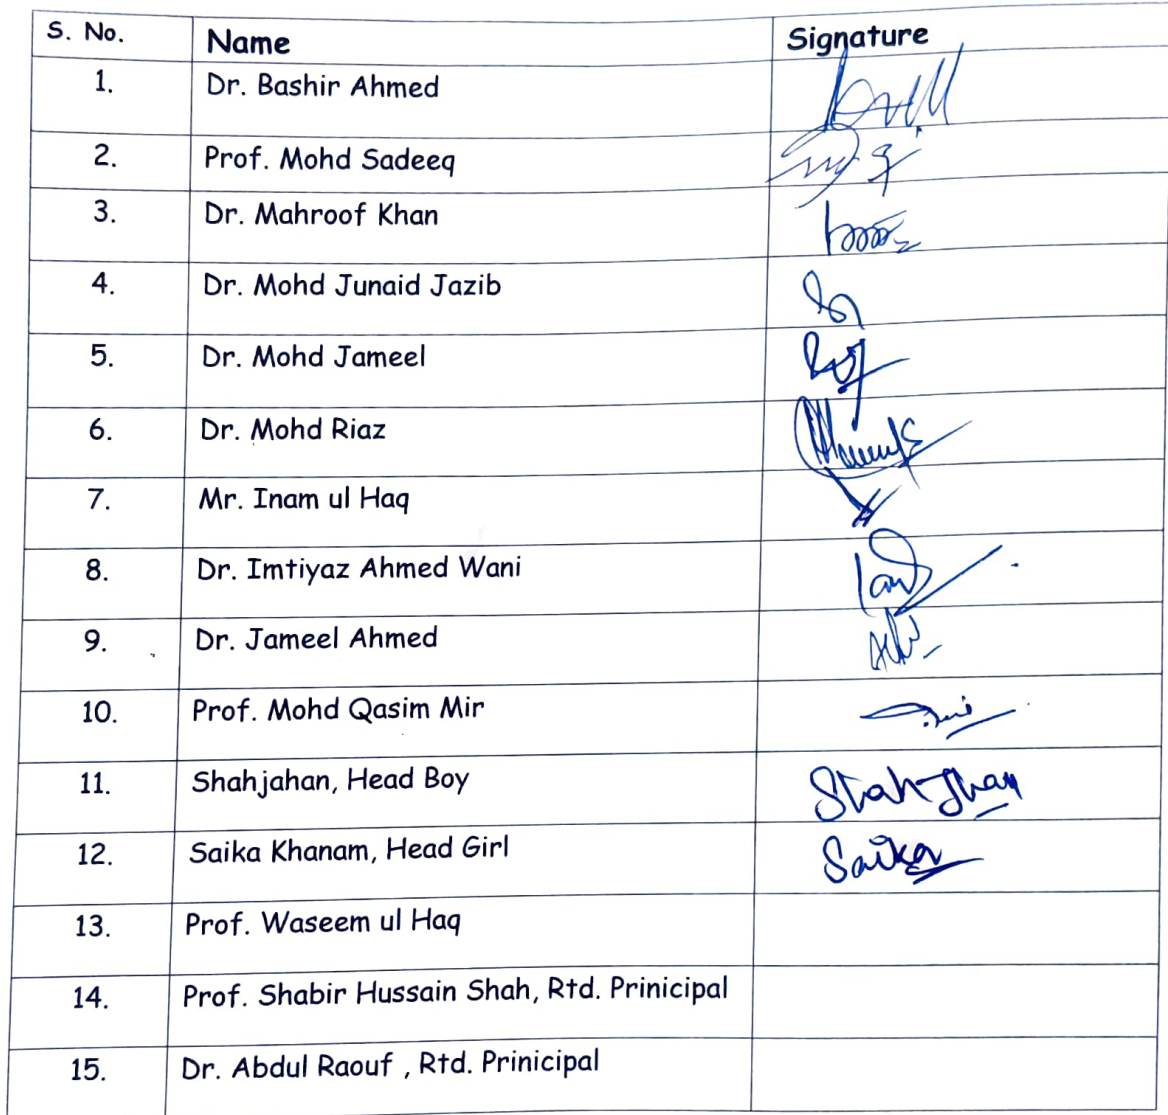 S. No. Name Signature
1. Dr. Bashir Ahmed
2. Prof. Mohd Sadeeq
3. Dr. Mahroof Khan
4. Dr. Mohd Junaid Jazib
5. Dr. Mohd Jameel
6. Dr. Mohd Riaz
7. Mr. Inam ul Haq
8. Dr. Imtiyaz Ahmed Wani
9. Dr. Jameel Ahmed
10. Prof. Mohd Qasim Mir
11. Shahjahan, Head Boy
12. Saika Khanam, Head Girl Saika
13. Prof. Waseem ul Haq
14. Prof. Shabir Hussain Shah, Rtd. Prinicipal
15. Dr. Abdul Raouf , Rtd. Prinicipal